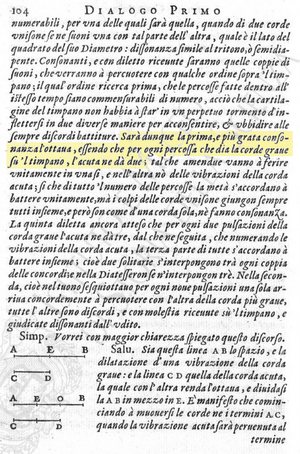 104 DIALOGO PRIMO
numerabili, per vna delle quali sarà quella, quando di due corde
vnisone se ne suoni vna con tal parte dell'altra, quale è il lato del
quadrato del suo Diametro: dissonanza simile al tritono, ò semidia-
pente. Consonanti, e con diletto riceuute saranno quelle coppie di
suoni, che verranno à percuotere con qualche ordine sopra 'l tim-
pano; il qual ordine ricerca prima, che le percosse fatte dentro all'
istesso tempo siano commensurabili di numero, acciò che la cartila-
gine del timpano non habbia à star'in vn perpetuo tormento d'in-
flettersi in due diuerse maniere per acconsentire, & vbbidire alle
sempre discordi battiture. Sarà dunque la prima, e più grata conso-
nanza l'ottaua, essendo che per ogni percossa che dia la corda graue
su'l timpano, l'acuta ne dà due; tal che amendue vanno à ferire
vnitamente in vna sì, e nell'altra nò delle vibrazioni della corda
acuta; sì che di tutto 'l numero delle percosse la metà s'accordano à
battere vnitamente, ma i colpi delle corde vnisone giungon sempre
tutti insieme, e però son come d'una corda sola, nè fanno consonanza.
La quinta diletta ancora atteso che per ogni due pulsazioni della
corda graue l'acuta ne dà tre, dal che ne seguita, che numerando le
vibrazioni della corda acuta, la terza parte di tutte s'accordano à
battere insieme; cioè due solitarie s'interpongono trà ogni coppia
delle concordi e nella Diatesseron se n'interpongon tre. Nella secon-
da, cioè nel tuono sesquiottauo per ogni noue pulsazioni vna sola ar-
riua concordemente à percuotere con l'altra della corda più graue,
tutte l'altre sono discordi, e con molestia riceuute sù 'l timpano, e
giudicate dissonanti dall'vdito.
Simp. Vorrei con maggior chiarezza spiegato questo discorso.
A E B Salu. Sia questa linea AB lo spazio, e la
dilatazione d'una vibrazione della corda
C D graue: e la linea CD quella della corda acuta,
A E O B la quale con l'altra renda l'ottaua, e diuidasi
la AB in mezzo in E. È manifesto che comin-
C D ciando à muouersi le corde ne i termini A, C,
quando la vibrazione acuta sarà peruenuta al
termine